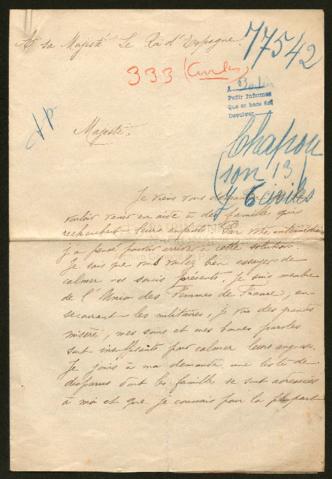 A sa Majesté Le Roi d'Espagne
77542
333 (Civiles)
Pedir Informes
Que se hace del
Devolver
Majesté,
Chapou
son 13
y 6 civiles
Je viens vous
vouloir venir en aide à des familles qui
recherchent leurs disparus. Par votre intermédiaire
j'ai pensé pouvoir arriver à cette solution.
Je sais que vous voulez bien essayer de
calmer nos soucis présents. Je suis membre
de l'Union des Femmes de France, en
secourant les militaires, je vois des
misère, mes soins et mes bonnes paroles
sont insuffisants pour calmer leurs angoisses.
Je joins à ma demande une liste de
disparus dont les familles se sont adressées
à moi et que je connais pour la plupart